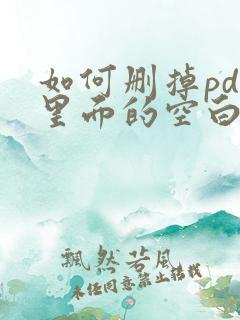 如何删掉pd
里面的空白
飘然若风
未经同意禁止搭载